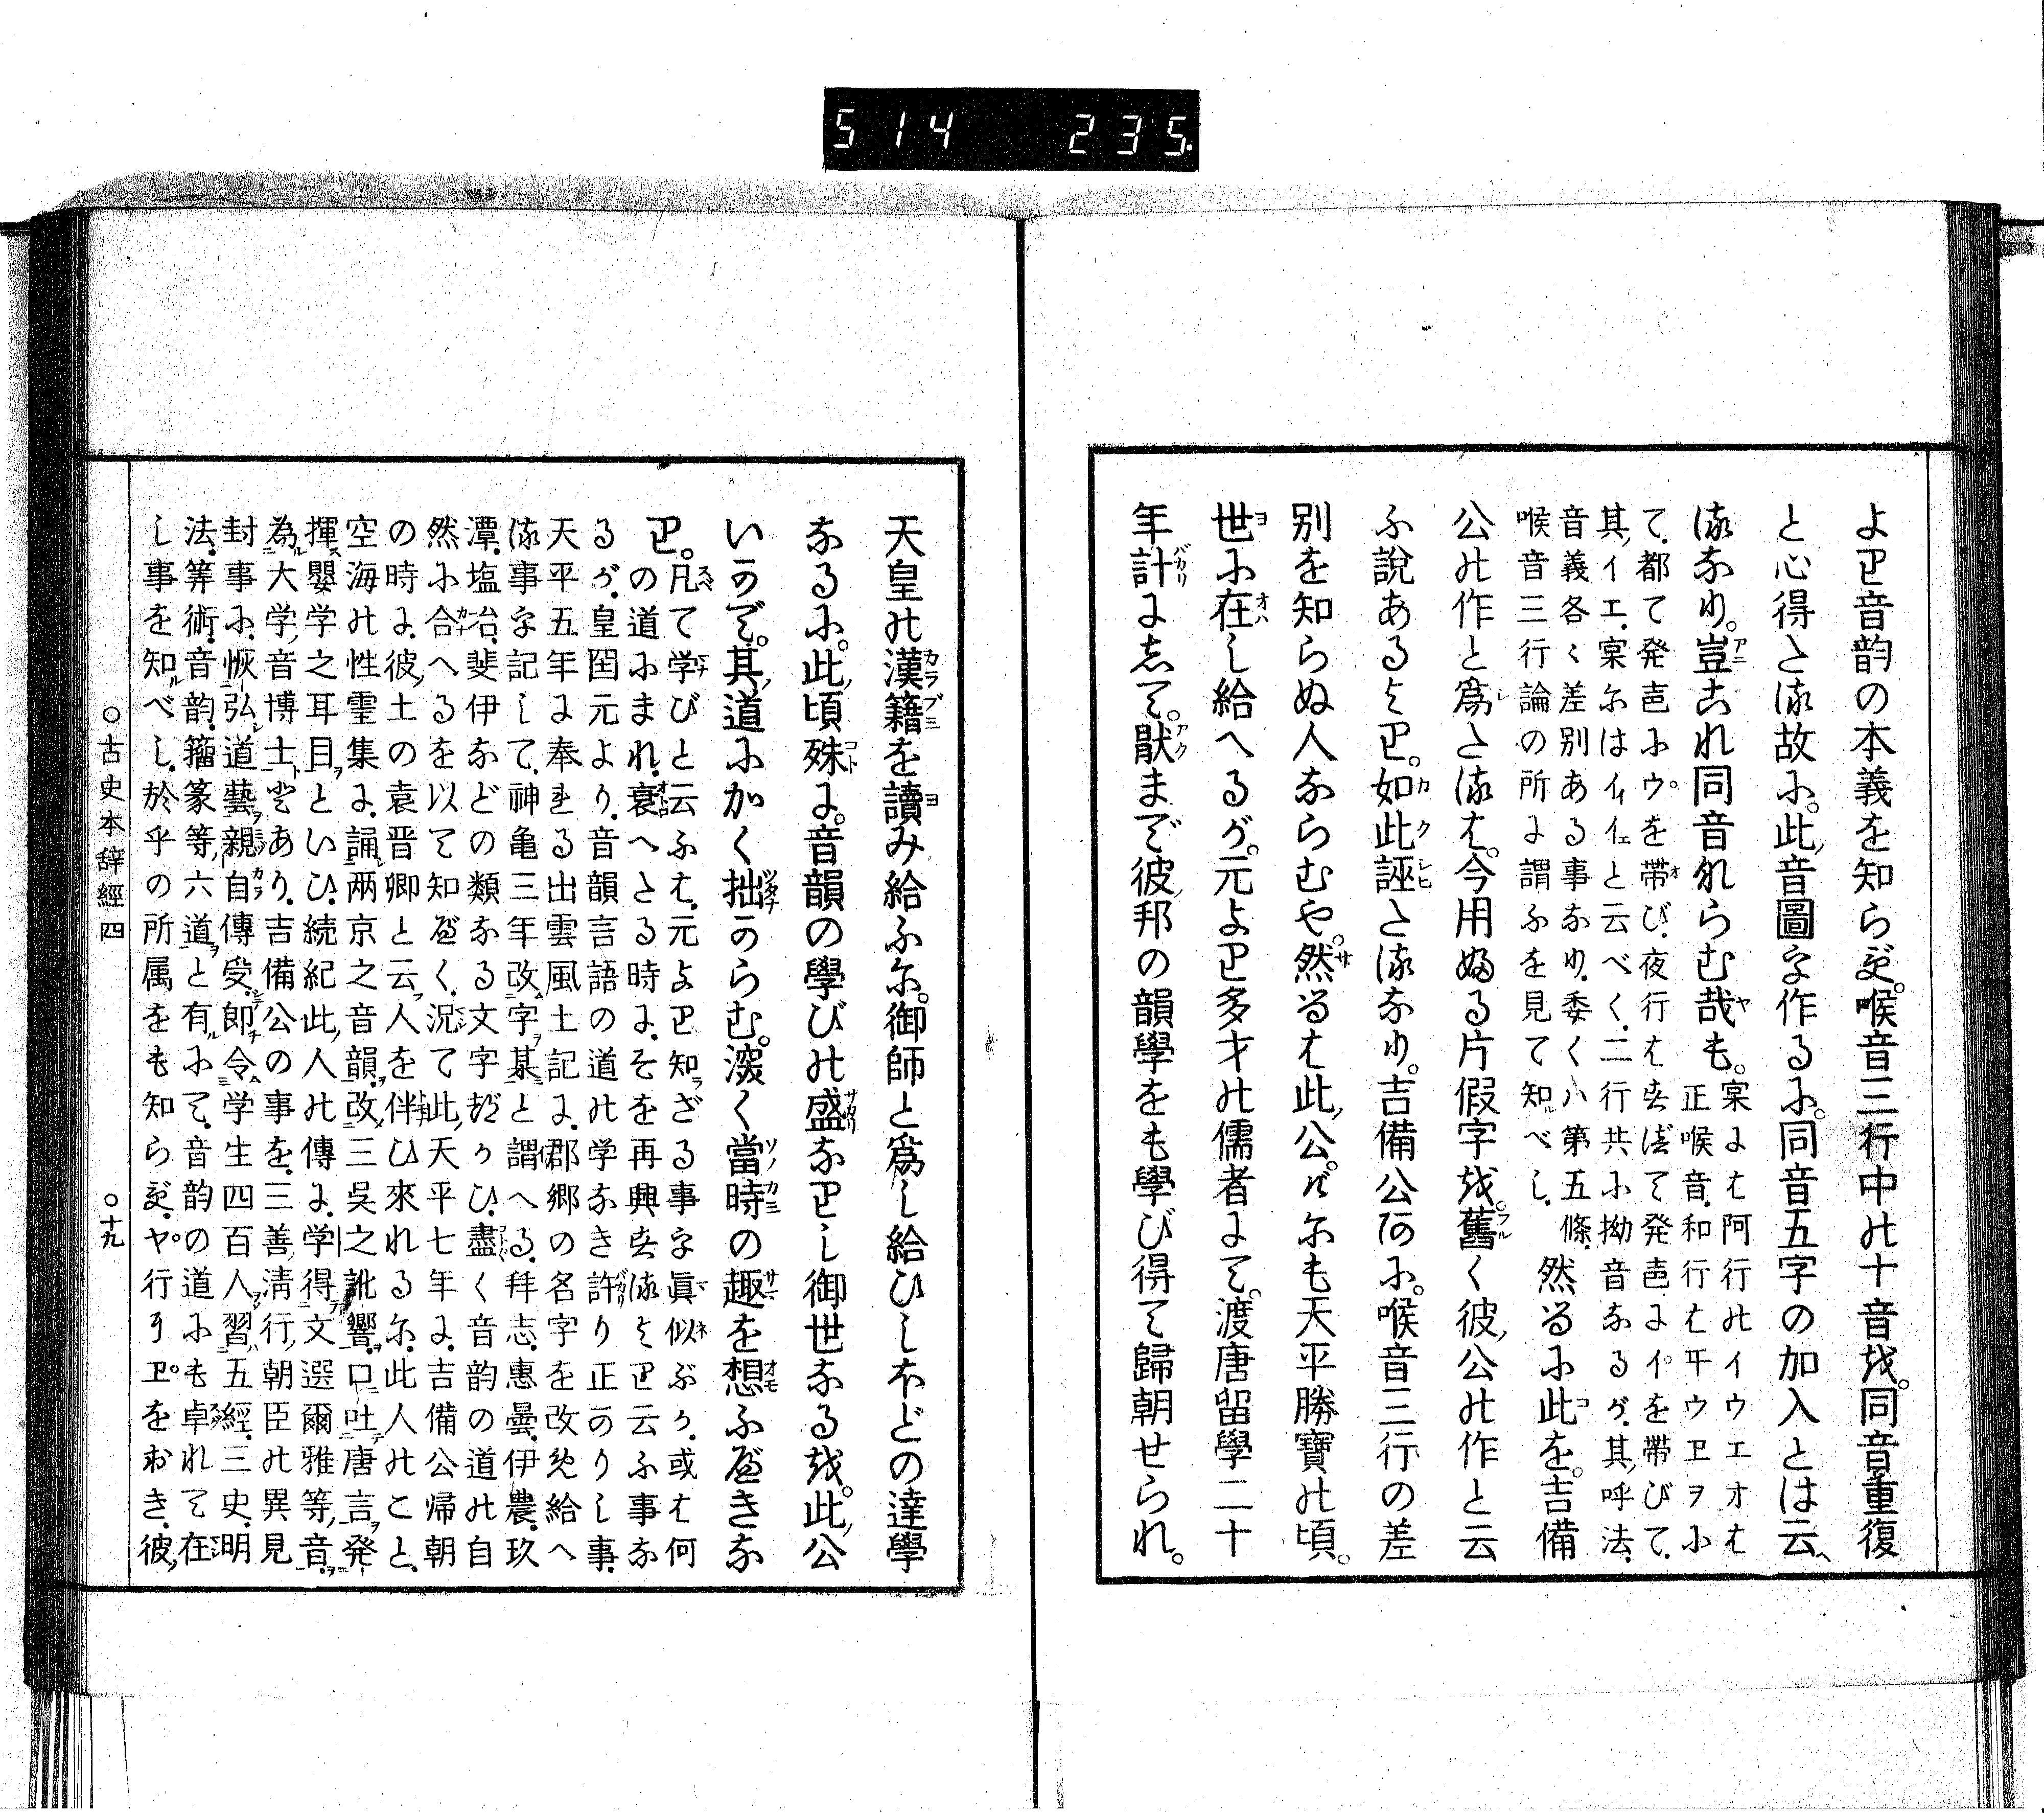 514 235.
より音韵の本義を知らず。喉音三行中の十音を。同音重復
と心得たる故に。此音圖を作るに。同音五字の加入とは云へ
るなり。豈これ同音ならむ哉も。案には阿行のイウエオは
正喉音。和行はヰウヱヲに
て。都て発声にウを帯び。夜行はすべて発声にイを帯びて。
其イエ。案にはイィイェと云べく。二行共に拗音なるが。其呼法。
音義各〻差別ある事なり。委くハ第五條。
喉音三行論の所に謂ふを見て知べし。
然るに此を。吉備
公の作と爲たるは。今用ゐる片假字を。舊く彼公の作と云
ふ説あるより。如此誣たるなり。吉備公何に。喉音三行の差
別を知らぬ人ならむや。然るは此公。いにも天平勝寶の頃。
世に在し給へるが。元より多才の儒者にて。渡唐留學二十
年計にして。猒まで彼邦の韻學をも學び得て歸朝せられ。
天皇の漢籍を讀み給ふに。御師と爲し給ひしほどの達學
なるに。此頃殊に。音韻の學びの盛なりし御世なるを。此公
いかで。其道にかく拙からむ。深く當時の趣を想ふべきな
り。凡て学びと云ふは。元より知ざる事を眞似ぶか。或は何
の道にまれ。衰へたる時に。そを再興するより云ふ事な
るが。皇国元より。音韻言語の道の学なき許り正かりし事。
天平五年に奉れる出雲風土記に。郡郷の名字を改め給へ
る事を記して。神亀三年改字某と謂へる。拜志。惠曇。伊農。玖
潭。塩冶。斐伊などの類なる文字づかひ。盡く音韵の道の自
然に合へるを以て知べく。況て此天平七年に。吉備公帰朝
の時に。彼土の袁晋卿と云人を伴ひ來れるに。此人のこと。
空海の性霊集に。誦両京之音韻。改三吳之訛響。口吐唐言発
揮嬰学之耳目といひ。続紀此人の傳に。学得文選爾雅等音。
為大学音博士とあり。吉備公の事を。三善清行朝臣の異見
封事に。恢弘道藝親自傳受。即令学生四百人習五經三史。明
法。筭術。音韵。籀篆等六道と有にて。音韵の道にも卓れて在
し事を知べし。於乎の所属をも知らず。ヤ行ワ行ヱをおき。彼
○古史本辞經四
○十九